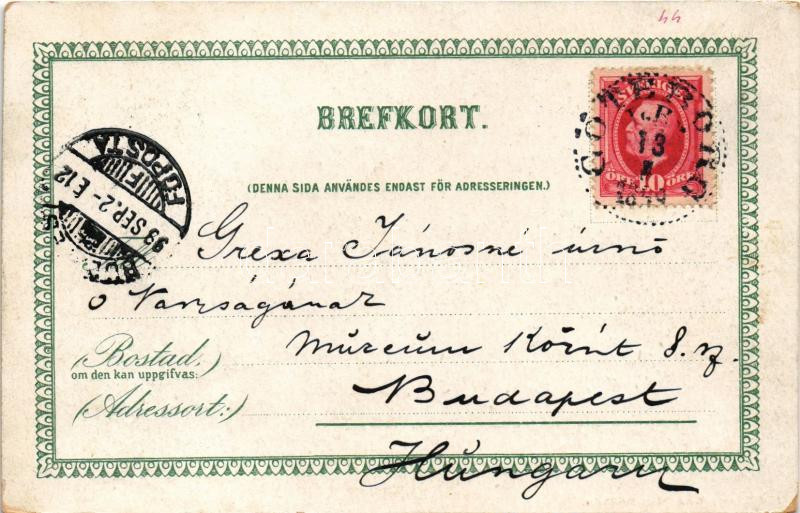 44
BREFKORT.
SVERIGE
GÖTEBORG
13
10
ÖRE ÖRE
(DENNA SIDA ANVÄNDES ENDAST FÖR ADRESSERINGEN.)
FŐPOSTA
98 SEP. 2 - E 12
BUD
Grexa Jánosné úrnő
Ő Nagyságának
(Bostad,)
om den kan uppgifvas:
Múzeum Körút 8. sz.
(Adressort:)
Budapest
Hungary